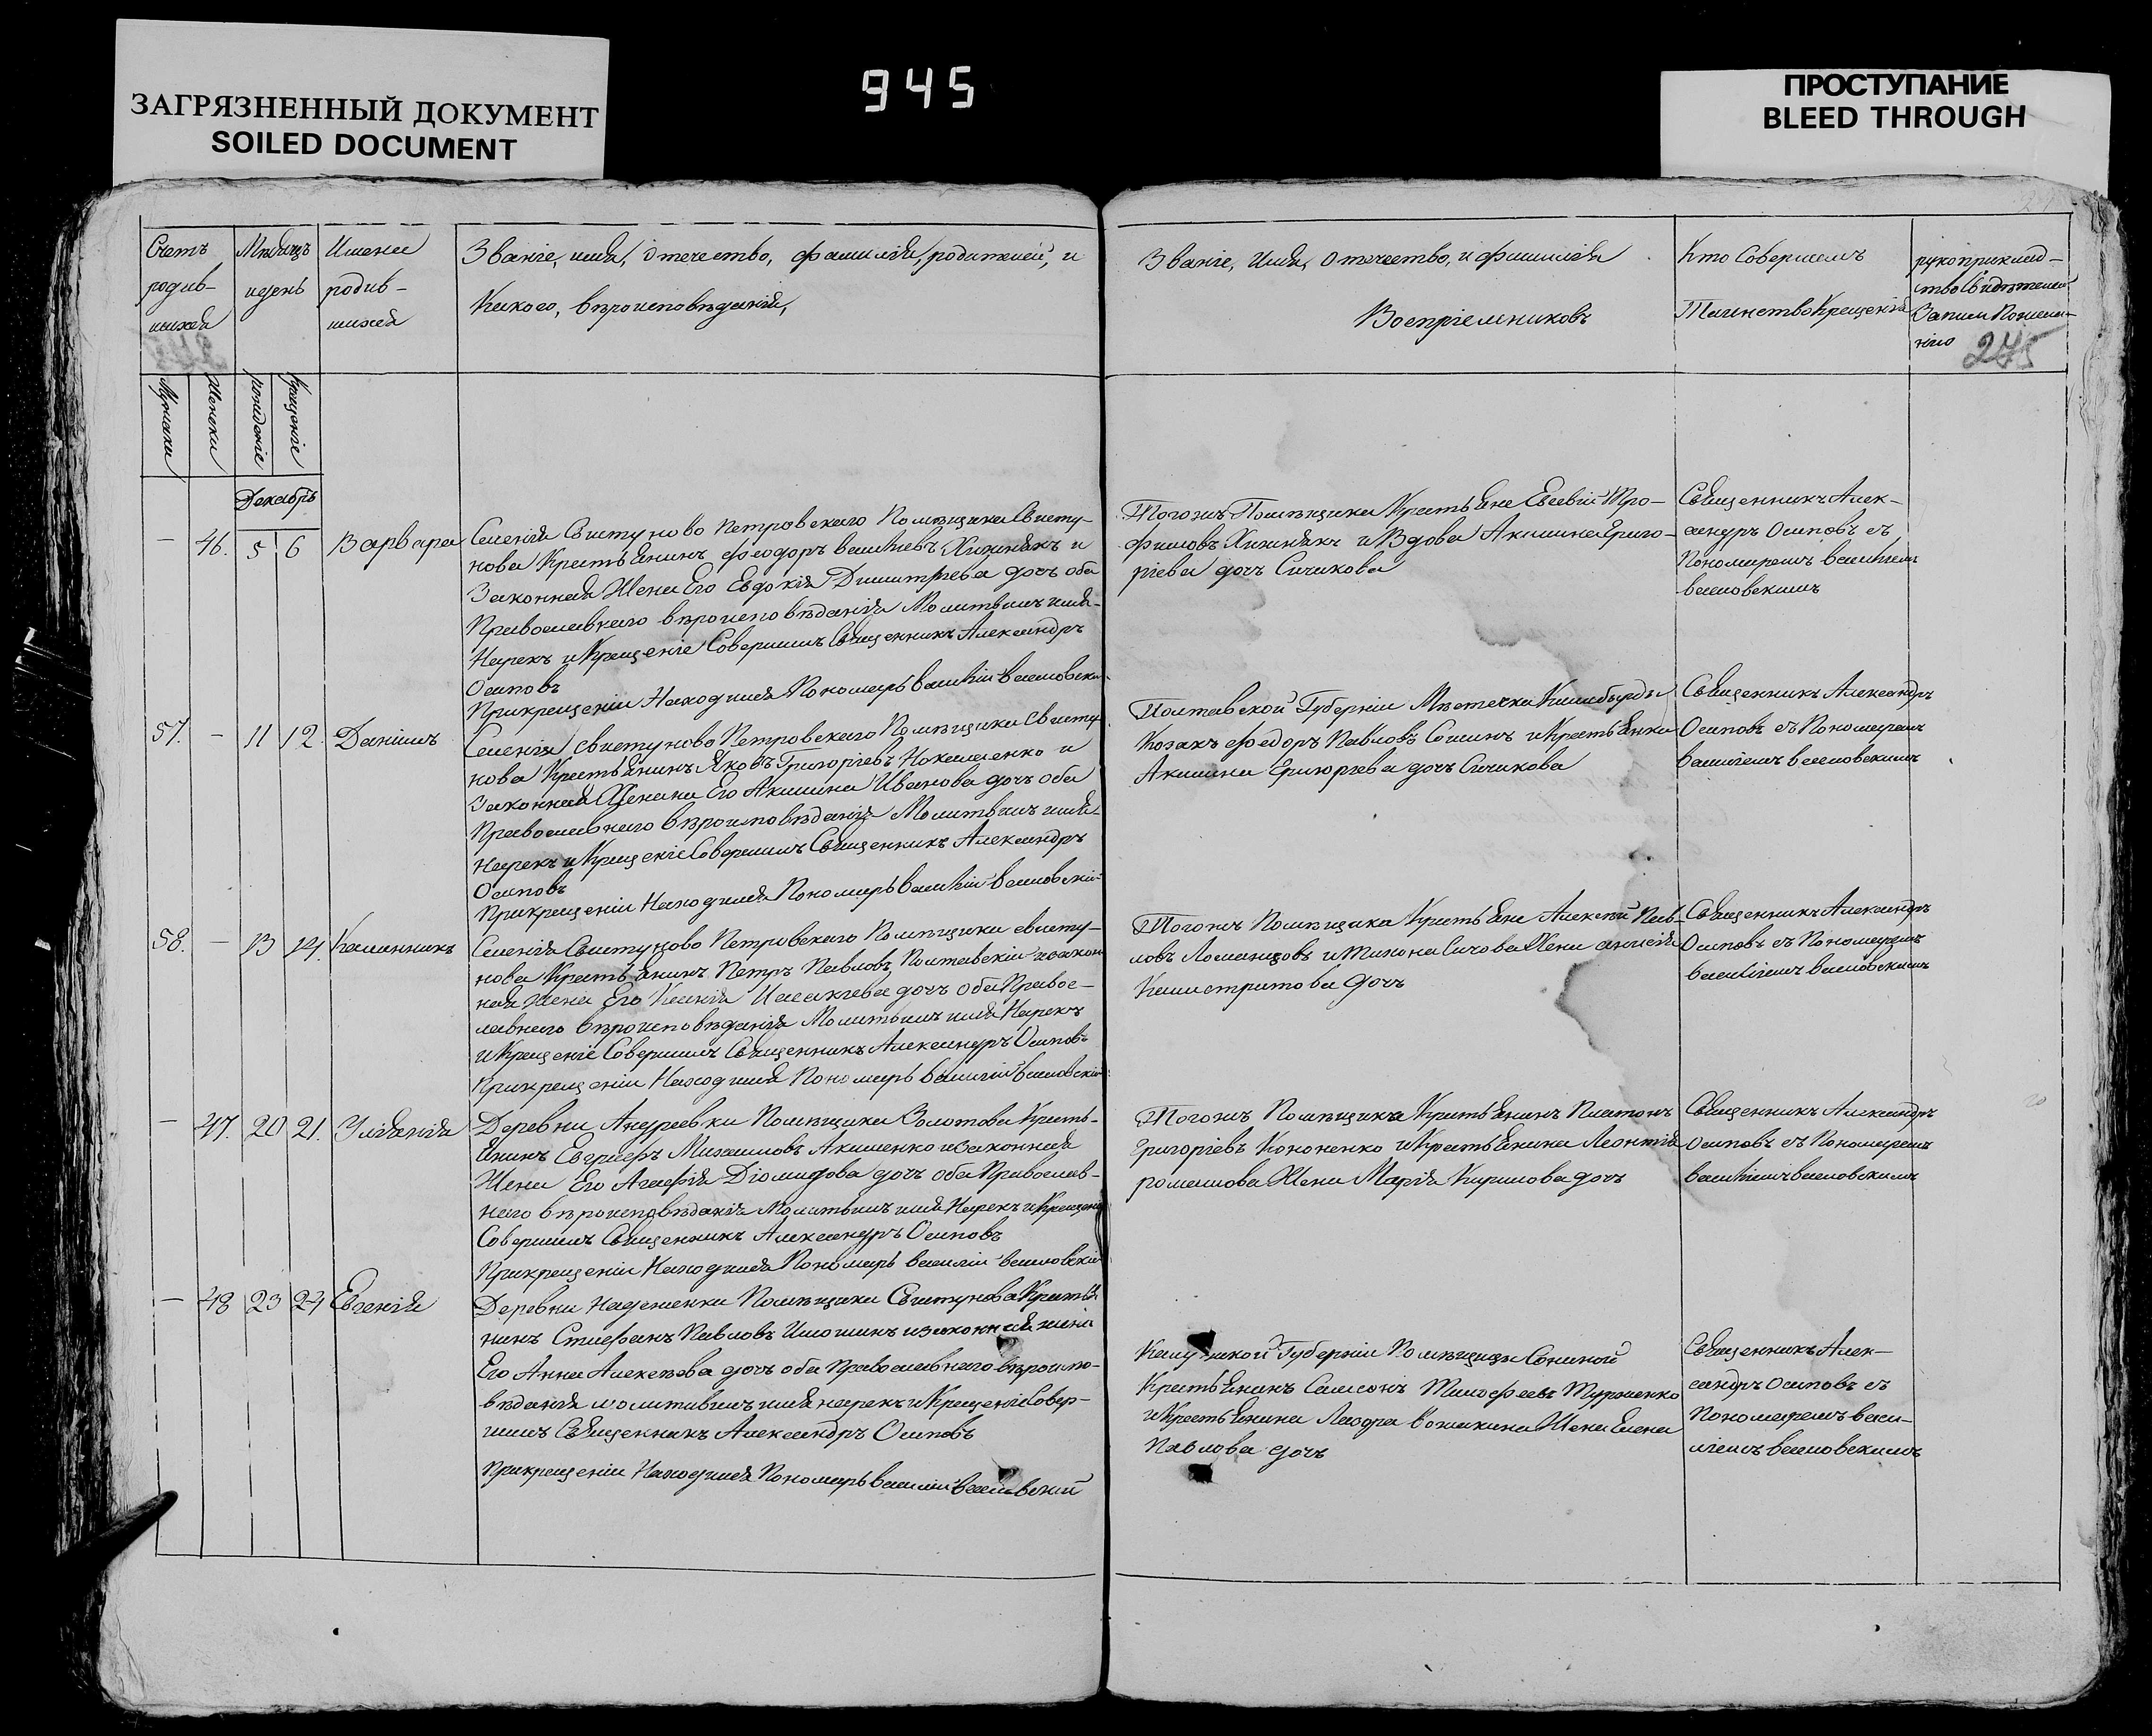 ЗАГРЯЗНЕННЫЙ ДОКУМЕНТ
SOILED DOCUMENT
945
ПРОСТУПАНИЕ
BLEED THROUGH
Счетъ родив-шихся
Мѣсяцъ и день
Имена родив-шихся
Званіе, имя, отечество, фамилія, родителей, и
Какого, вѣроисповѣданія,
Званіе, Имя, Отечество, и фамилія
Воспріемниковъ
Кто Совершалъ
Таинство Крещенія
рукоприклад-
ство Свидѣтелей
Записи По желанію
275
Мужска
Женски
рожденіе
Крещеніе
Декабрь
— 46. 5 6 Варвара
Селенія Свистуново Петровскаго Помѣщика Свисту-
нова Крестьянинъ Феодоръ Васильевъ Хижнякъ и
Законная Жена Его Евдокія Димитріева дочь оба
Православнаго вѣроисповѣданія Молитвилъ имя-
Нарекъ и Крещеніе Совершилъ Священникъ Александръ
Осиповъ
При крещеніи Находился Пономарь Василій
Тогожъ Помѣщика Крестьяне Евсевій Тро-
фимовъ Хижнякъ и Вдова Акилина Григо-
ріева дочь Сичикова
Священникъ Алек-
сандръ Осиповъ съ
Пономаремъ Василіемъ
57. — 11 12. Даніилъ
Селенія Свистуново Петровскаго Помѣщика Свисту-
нова Крестьянинъ Яковъ Григоріевъ и
Законная Жена Его Акилина Иванова дочь оба
Православнаго вѣроисповѣданія Молитвилъ имя-
Нарекъ и Крещеніе Совершилъ Священникъ Александръ
Осиповъ
При крещеніи Находился Пономарь Василій
Полтавской Губерніи Мѣстечка
Козакъ Федоръ Павловъ и Крестьянка
Акилина Григоріева дочь Сичикова
Священникъ Александръ
Осиповъ съ Пономаремъ
Василіемъ
58. — 13 14. Калинникъ
Селенія Свистуново Петровскаго Помѣщика Свисту-
нова Крестьянинъ Петръ Павловъ Полтавскій и закон
ная Жена Его Ксенія Исаакіева дочь оба Правос-
лавнаго вѣроисповѣданія Молитвилъ имя Нарекъ
и Крещеніе Совершилъ Священникъ Александръ Осиповъ
При крещеніи Находился Пономарь Василій
Тогожъ Помѣщика Крестьяне Алексѣй Пав-
ловъ и Тихона Жена
Калистратова дочь
Священникъ Александръ
Осиповъ съ Пономаремъ
Василіемъ
— 47. 20 21. Уліянія
Деревни Андреевки Помѣщика Золотова Кресть-
янинъ Евграфъ Михаиловъ Акименко и законная
Жена Его Агафія Діомидова дочь оба Православ-
наго вѣроисповѣданія Молитвилъ имя Нарекъ и Крещеніе
Совершилъ Священникъ Александръ Осиповъ
При крещеніи Находился Пономарь Василій
Тогожъ Помѣщика Крестьянинъ Платонъ
Григоріевъ Кононенко и Крестьянина Леонтія
романова Жена Марія Кирилова дочь
Священникъ Александръ
Осиповъ съ Пономаремъ
Василіемъ
— 48 23 24 Евгенія
Деревни Помѣщика Свистунова Крестья
нинъ Стефанъ Павловъ и законная жена
Его Анна Алексѣева дочь оба Православнаго вѣроиспо-
вѣданія молитвилъ имя нарекъ и Крещеніе Совер-
шилъ Священникъ Александръ Осиповъ
При крещеніи Находился Пономарь Василій
Губерніи Помѣщицы
Крестьянинъ Самсонъ Тимофеевъ
и Крестьянина Жена Елена
Павлова дочь
Священникъ Алек-
сандръ Осиповъ съ
Пономаремъ Васи-
ліемъ